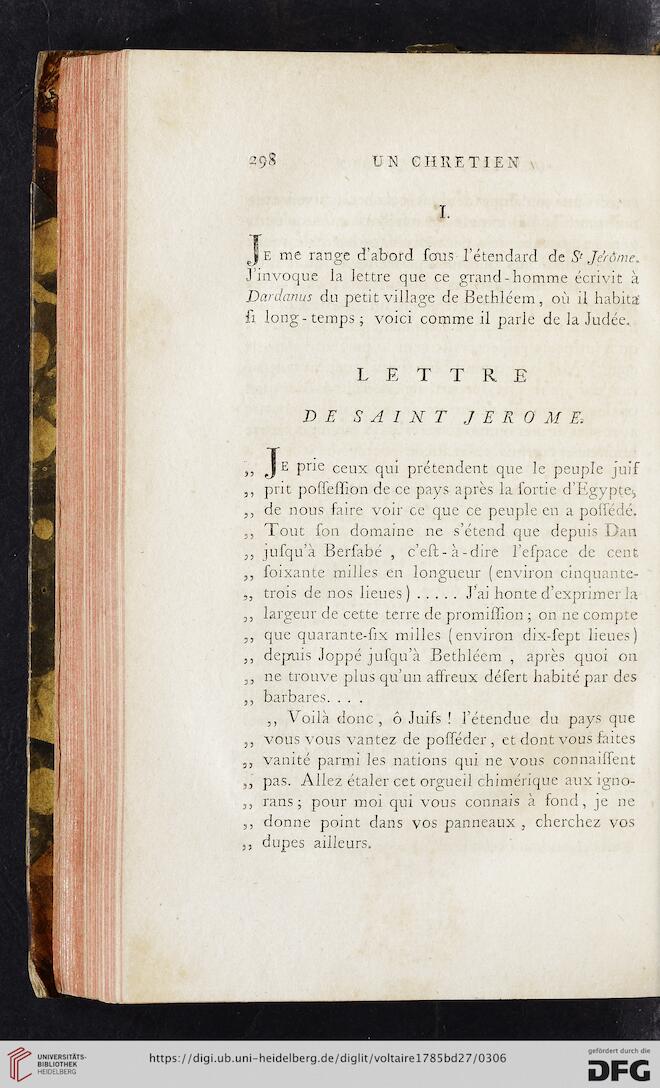 298 UN CHRETIEN
I.
JE me range d'abord ſous l'étendard de St Jérôme.
J'invoque la lettre que ce grand-homme écrivit à
Dardanus du petit village de Bethléem, où il habita
ſi long-temps ; voici comme il parle de la Judée.
LETTRE
DE SAINT JEROME.
,, JE prie ceux qui prétendent que le peuple juif
,, prit poſſeſſion de ce pays après la ſortie d'Egypte,
,, de nous faire voir ce que ce peuple en a poſſédé.
,, Tout ſon domaine ne s'étend que depuis Dan
,, juſqu'à Berſabé , c'eſt-à-dire l'eſpace de cent
,, ſoixante milles en longueur (environ cinquante-
,, trois de nos lieues) . . . . . J'ai honte d'exprimer la
,, largeur de cette terre de promiſſion ; on ne compte
,, que quarante-ſix milles (environ dix-ſept lieues)
,, depuis Joppé juſqu'à Bethléem , après quoi on
,, ne trouve plus qu'un affreux déſert habité par des
,, barbares. . . .
,, Voilà donc , ô Juifs ! l'étendue du pays que
,, vous vous vantez de poſſéder , et dont vous faites
,, vanité parmi les nations qui ne vous connaiſſent
,, pas. Allez étaler cet orgueil chimérique aux igno-
,, rans ; pour moi qui vous connais à fond, je ne
,, donne point dans vos panneaux , cherchez vos
,, dupes ailleurs.
UNIVERSITÄTS-
BIBLIOTHEK
HEIDELBERG
https://digi.ub.uni-heidelberg.de/diglit/voltaire1785bd27/0306
gefördert durch die
DFG